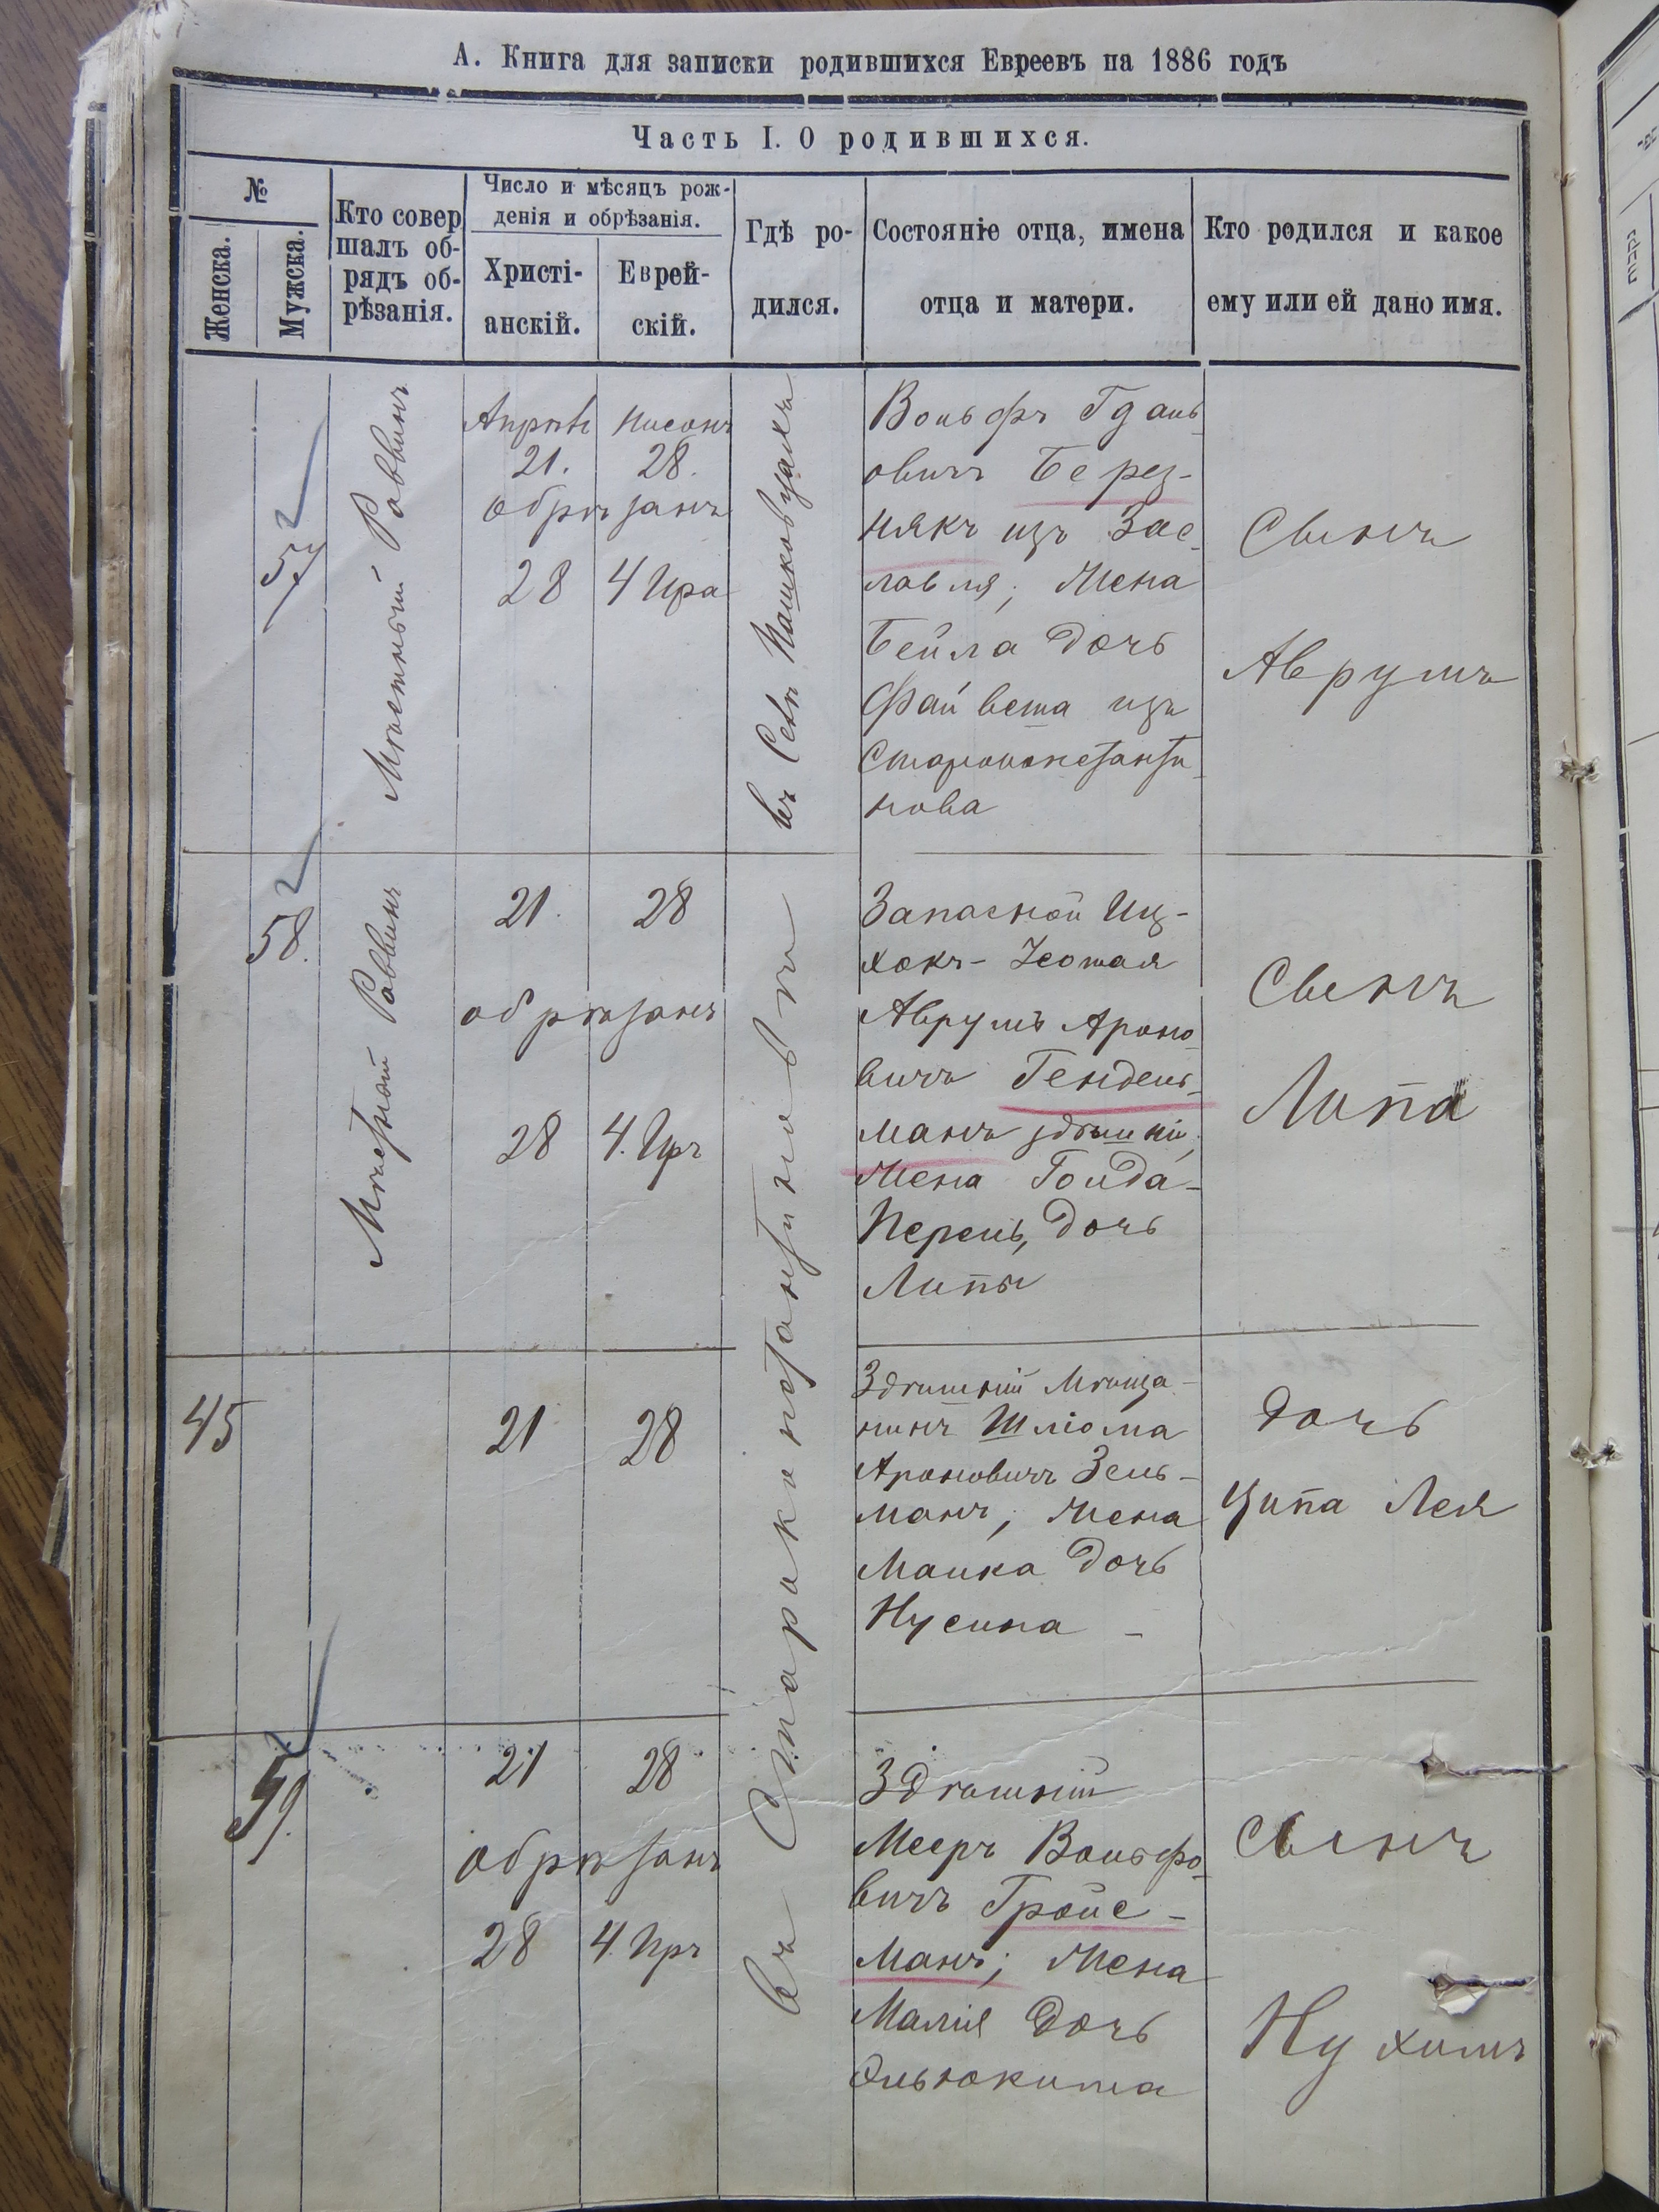 А. Книга для записки родившихся Евреевъ на 1886 годъ
Часть I. О родившихся.
№
Женска.
Мужска.
Кто совер
шалъ об-
рядъ об-
рѣзанія.
Число и мѣсяцъ рож-
денія и обрѣзанія.
Христі-
анскій.
Еврей-
скій.
Гдѣ ро-
дился.
Состояніе отца, имена
отца и матери.
Кто родился и какое
ему или ей дано имя.
57
Мѣстный Раввинъ
Апрѣль Нисонъ
21. 28.
обрѣзанъ
28 4 Ира
въ Селѣ Пашковцахъ
Вольфъ
овичъ Берез-
някъ изъ Зас-
лавля; Жена
Бейла дочь
Файвеша изъ
Староконстанти
нова
Сынъ
Аврумъ
58.
Мѣстный Раввинъ
21. 28
обрѣзанъ
28 4. Иръ
въ Староконстантиновѣ
Запасной Иц-
хокъ-
Аврумъ Ароно
вичъ Гендель
манъ здѣшній,
Жена Гольда-
Перель, дочь
Липы
Сынъ
Липа
45
21 28
Здѣшній Мѣща-
нинъ Шліома
Ароновичъ Зель-
манъ, Жена
Малка дочь
Нусина -
Дочь
Ципа Лея
59.
21 28
обрѣзанъ
28 4. Иръ
Здѣшній
Мееръ Вольфо
вичъ Гройс-
манъ; Жена
Малия Дочь
Эльюкима
Сынъ
Нухимъ